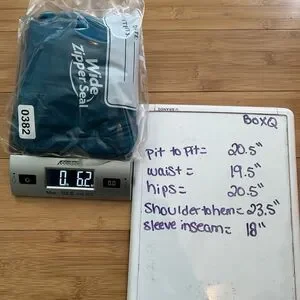 Wide
Zipper Seal
0382
0. 6.2
BOXQ
Pit to Pit = 20.5"
waist = 19.5"
hips = 20.5"
Shoulder to hem = 23.5"
sleeve inseam = 18"